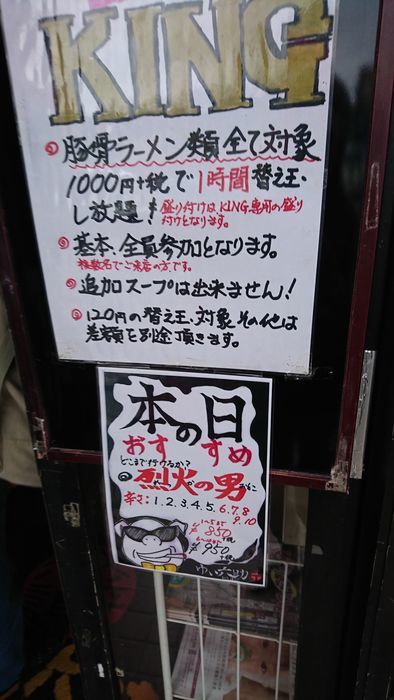 KING
豚骨ラーメン類全て対象
1000円+税で1時間替え玉
し放題!
盛り付けはKING専用の盛り
付けとなります。
基本、全員参加となります。
複数名でご来店の方です。
追加スープは出来ません!
120円の替え玉対象その他は
差額を別途頂きます。
本の日
おすすめ
どこまで行けるか?
烈火の男
辛さ:1.2.3.4.5.6.7.8
9.10
1~5まで
¥850
¥950